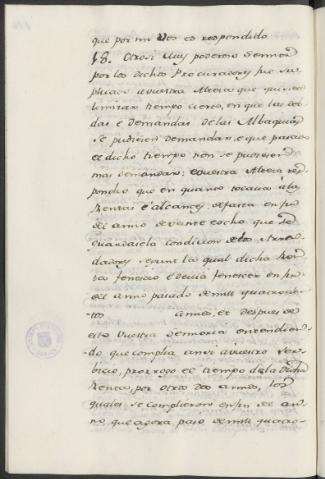 que por mi Vos es respondido
18. Otrosi Muy poderoso Sennor
por los dichos Procuradores fue su-
plicado a vuestra Alteza que quisiese
limitar tiempo cierto, en que las deb-
das e demandas de las Albaquias
se pudiesen demandar, e que pasado
el dicho tiempo non se pudiesen
mas demandar: e vuestra Alteza res-
pondio que en quanto tocava a la
Rentas e alcances, desasta en fin
del anno de veinte e ocho que se
guardase la condicion de los Arren-
dadores segunt la qual dicha Ren-
ta fenecio e devia fenescer en fin
del anno pasado de mill quatrocien-
tos annos, et despues de
esto Vuestra Sennoria entendien-
do que complia ansi a vuestro Ser-
vicio, prorrogo el tiempo de la dicha
Renta, por otros dos annos, los
quales se complieron en fin de an-
no, que agora paso de mill quatro-